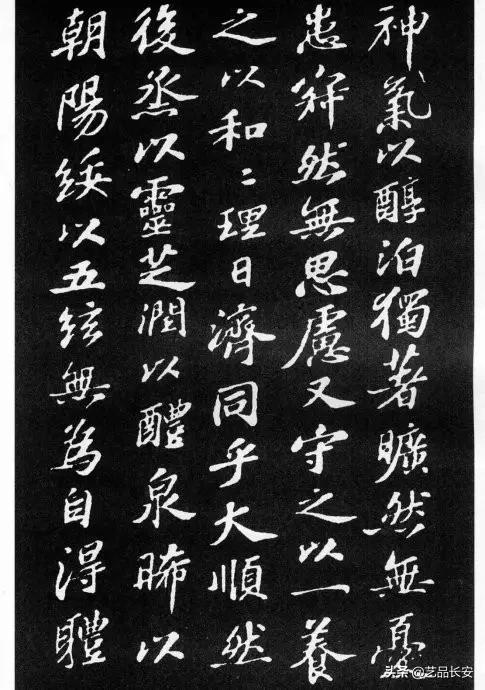 神氣以醇泊獨著曠然無憂
患寂然無思慮又守之以一養
之以和〻理日濟同乎大順然
後烝以靈芝潤以醴泉晞以
朝陽綏以五絃無為自得體
头条 @艺品长安